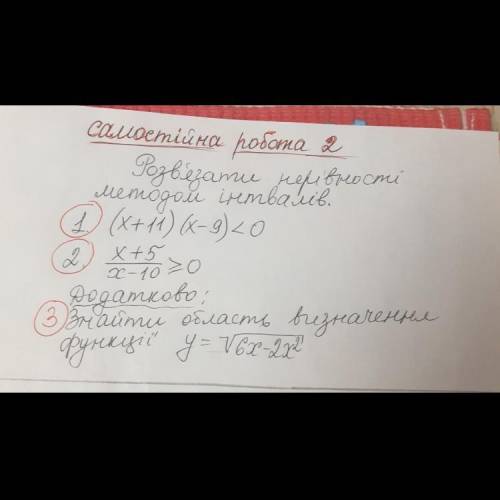 самостійна робота 2
Розв'язати нерівності
методом інтвалів.
1 (x+11)(x-9)<0
2 x+5/x-10 ≥0
Додатково:
3 Знайти область визначення
функції y=√6x-2x²